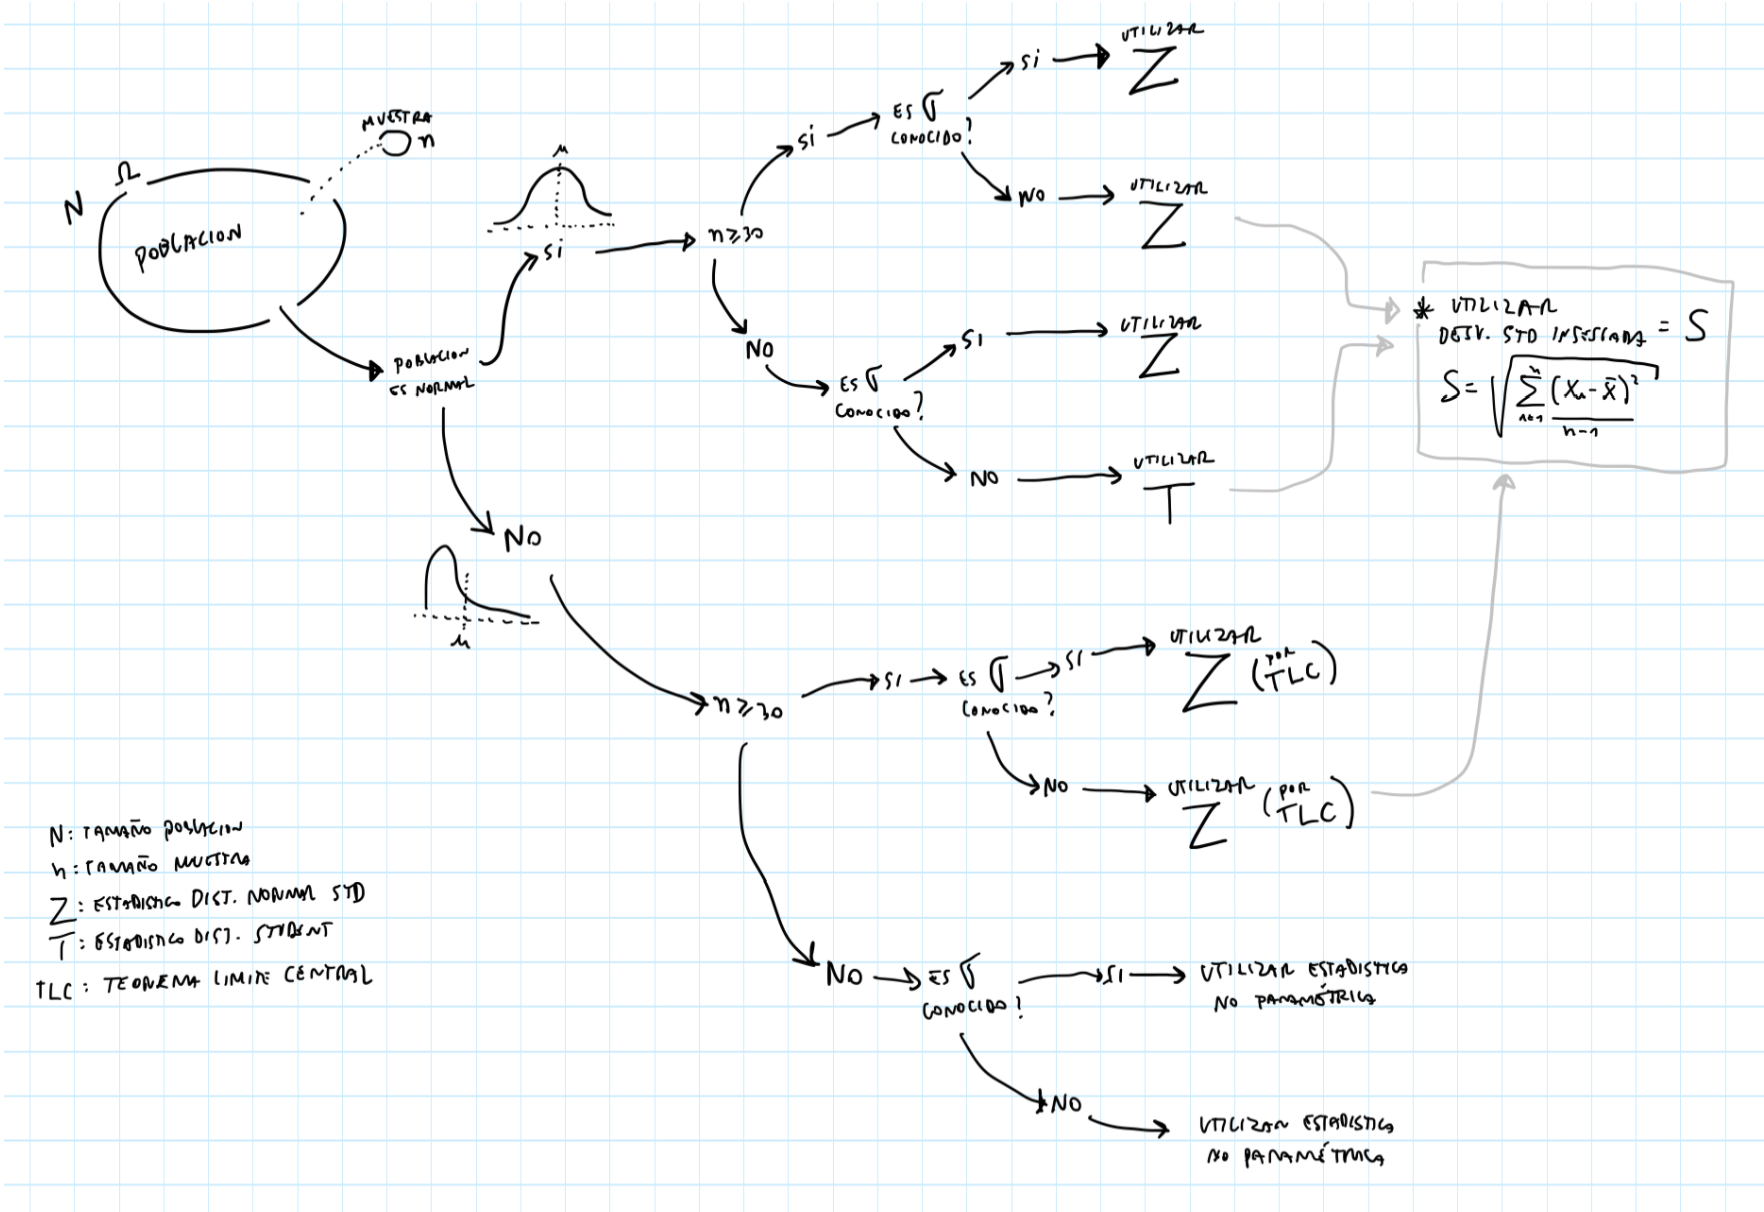 MUESTRA
n
Ω
N
POBLACION
μ
SI
POBLACION
ES NORMAL
n≥30
SI
ES σ
CONOCIDO?
SI
UTILIZAR
Z
NO
UTILIZAR
Z
NO
ES σ
CONOCIDO?
SI
UTILIZAR
Z
NO
UTILIZAR
T
* UTILIZAR
DESV. STD INSESGADA = S
S = √ Σ (Xi - x̄)²
n-1
NO
μ
n≥30
SI
ES σ
CONOCIDO?
SI
UTILIZAR
Z (POR TLC)
NO
UTILIZAR
Z (POR TLC)
NO
ES σ
CONOCIDO?
SI
UTILIZAR ESTADISTICA
NO PARAMÉTRICA
NO
UTILIZAR ESTADISTICA
NO PARAMÉTRICA
N: TAMAÑO POBLACION
n: TAMAÑO MUESTRA
Z: ESTADISTICO DIST. NORMAL STD
T: ESTADISTICO DIST. STUDENT
TLC: TEOREMA LIMITE CENTRAL